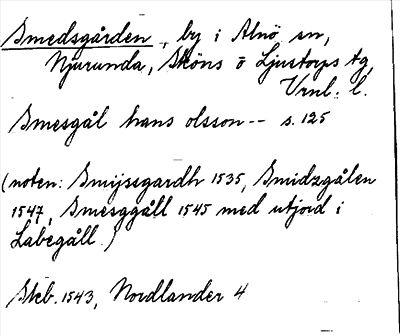 Smedsgården, by i Alnö sn,
Njurunda, Sköns o Ljustorps tg,
Vrnl. l.
Smesgål hans olsson-- s. 125
(noten: Smijssgardh 1535, Smidzgålen
1547, Smesggåll 1545 med utjord i
Labegåll.)
Skb. 1543, Nordlander 4